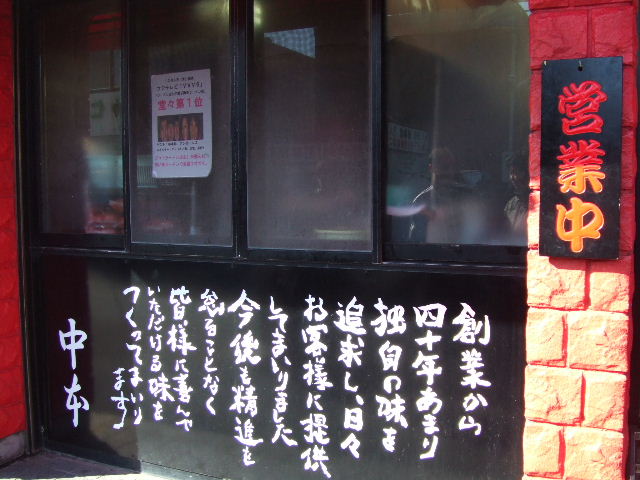 営業中
堂々第1位
創業から
四十年あまり
独自の味を
追求し、日々
お客様に提供
してまいりました
今後も精進を
怠ることなく
皆様に喜んで
いただける味を
つくってまいり
ます。
中本